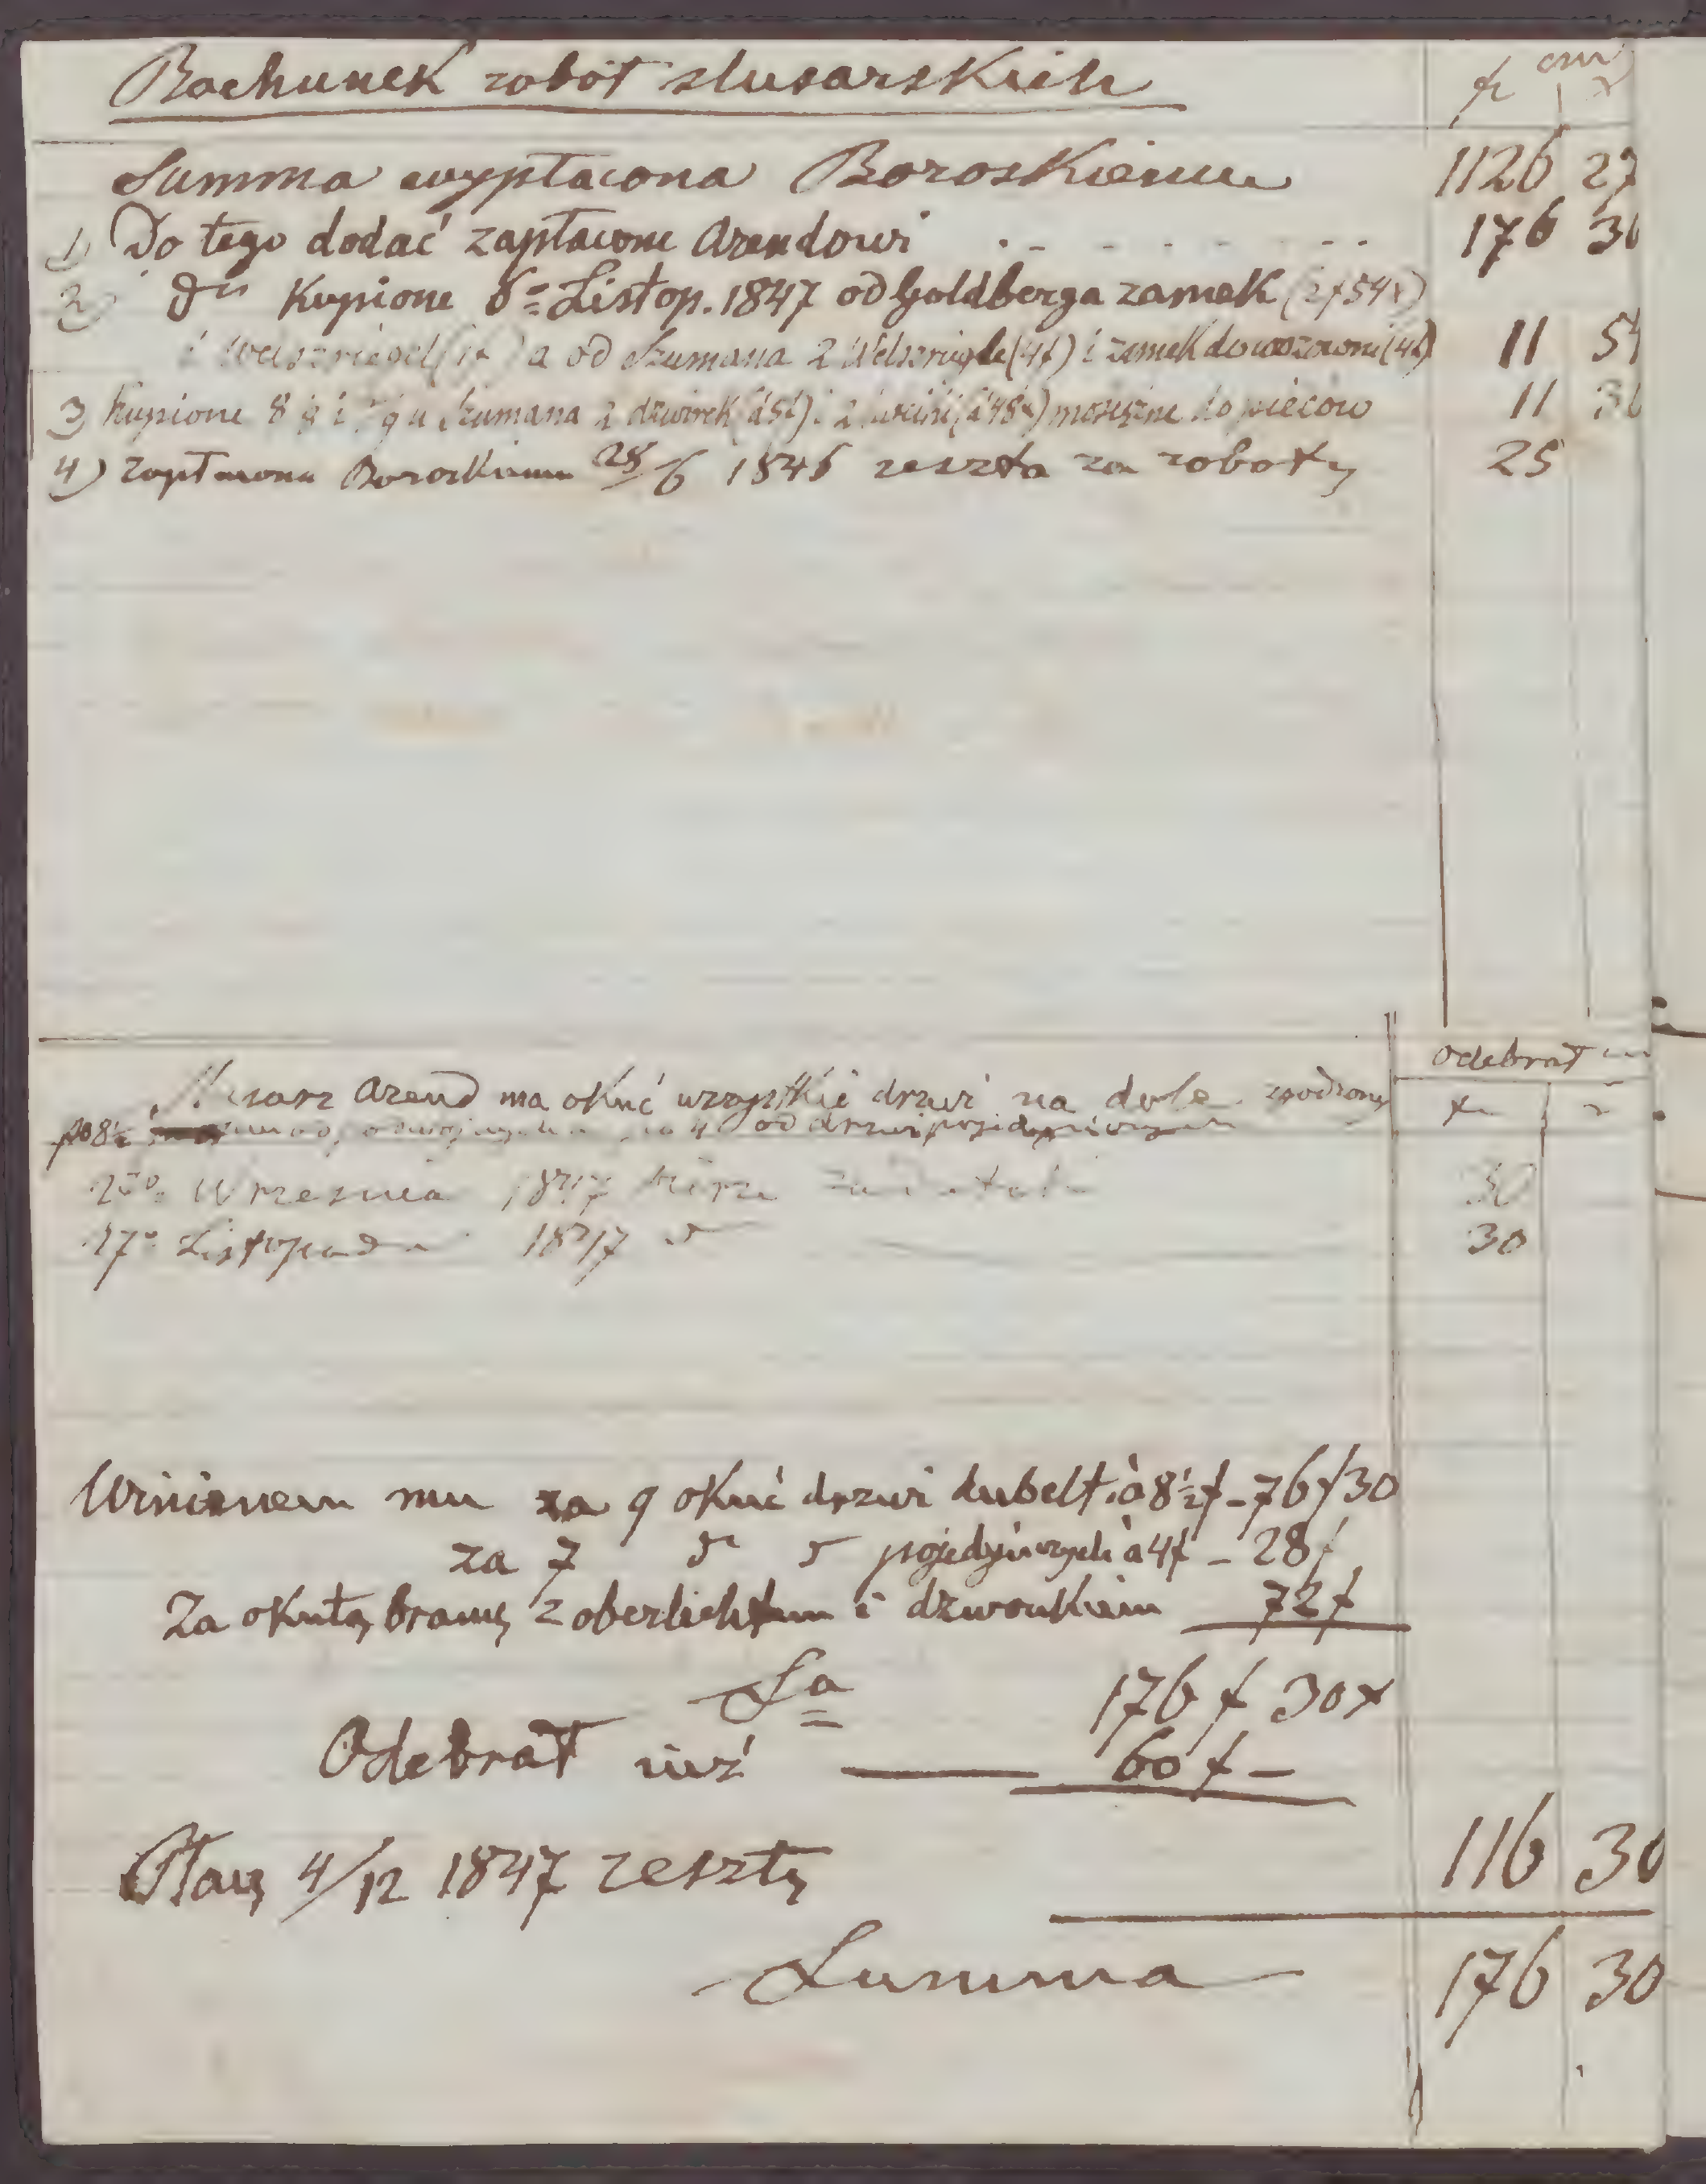 Rachunek robót slusarskich
fr cm x
Summa wypłacona Boroskiemu 1126 27
1) Do tego dodać zapłacone Arendowi . . . . . . . 176 30
2) dto Kupione 6º Listop. 1847 od Goldberga zamek (2f 54x)
i a od Szumana 2 (4f) i zamek do (4f) 11 54
3) Kupione 8 u Szumana 2 dzwirek (à 5f) i 2 (à 48x) mosiężne do pieców 11 36
4) Zapłacono Boroskiemu 28/6 1846 reszta za roboty 25
Slusarz Arend ma okuć wszystkie drzwi na dole zgodzony
po 8½ od drzwi pojedyńczych
odebrał
Września 1847 bierze 30
17º Listopada 1847 30
Winienem mu za 9 okuć drzwi dubelt. à 8½f - 76f 30
za 7 pojedyńczych à 4f - 28f
Za okutą bramę z oberlichtem i dzwonkiem 72f
Sa 176f 30x
Odebrał iuż — 60f —
Płacę 4/12 1847 resztę 116 30
Summa 176 30